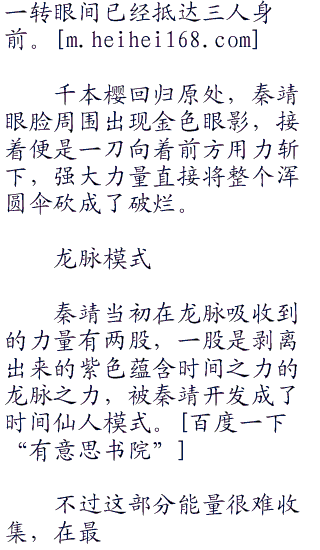 一转眼间已经抵达三人身
前。[m.heihei168.com]
千本樱回归原处，秦靖
眼脸周围出现金色眼影，接
着便是一刀向着前方用力斩
下，强大力量直接将整个浑
圆伞砍成了破烂。
龙脉模式
秦靖当初在龙脉吸收到
的力量有两股，一股是剥离
出来的紫色蕴含时间之力的
龙脉之力，被秦靖开发成了
时间仙人模式。[百度一下
“有意思书院”]
不过这部分能量很难收
集，在最